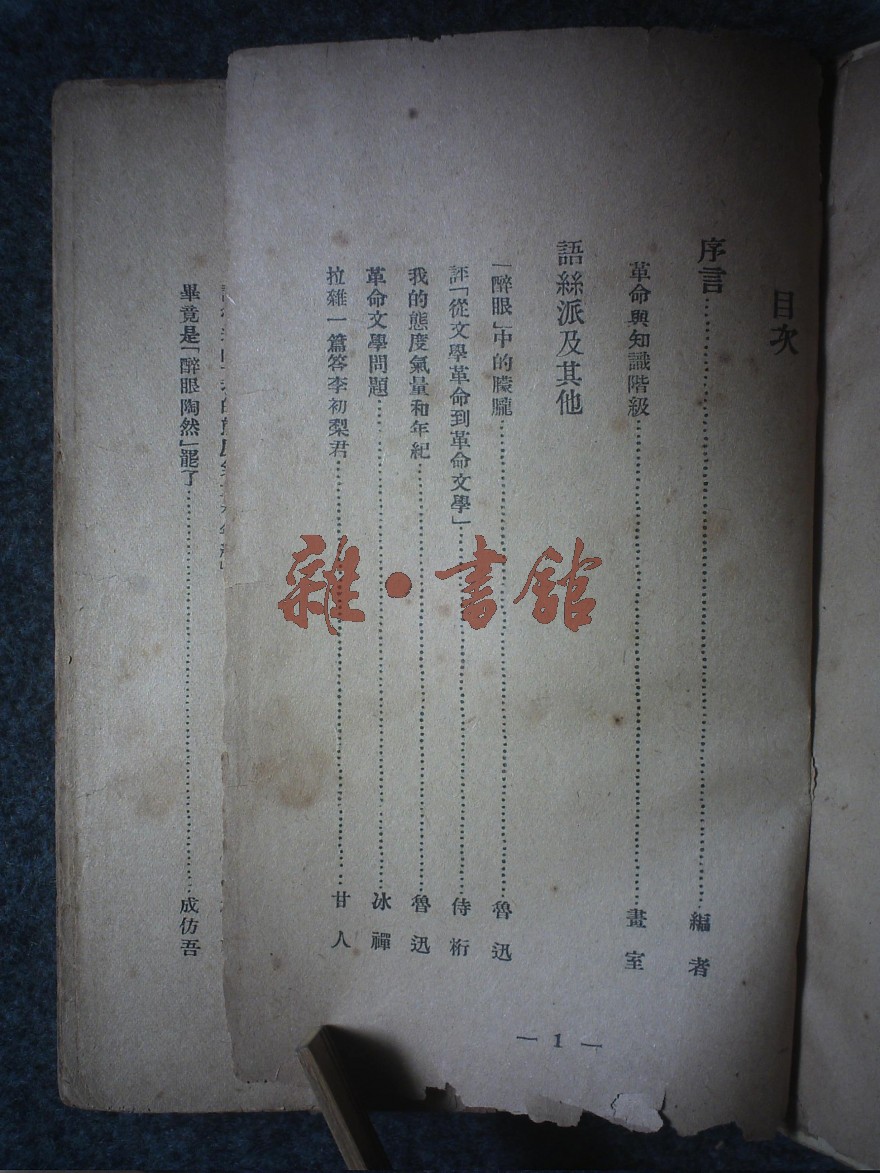 目次
序言……編者
革命與知識階級……畫室
語絲派及其他
「醉眼」中的朦朧……魯迅
評「從文學革命到革命文學」……侍桁
我的態度氣量和年紀……魯迅
革命文學問題……冰禪
拉雜一篇答李初梨君……甘人
— 1 —
畢竟是「醉眼陶然」罷了……成仿吾
雜·書館